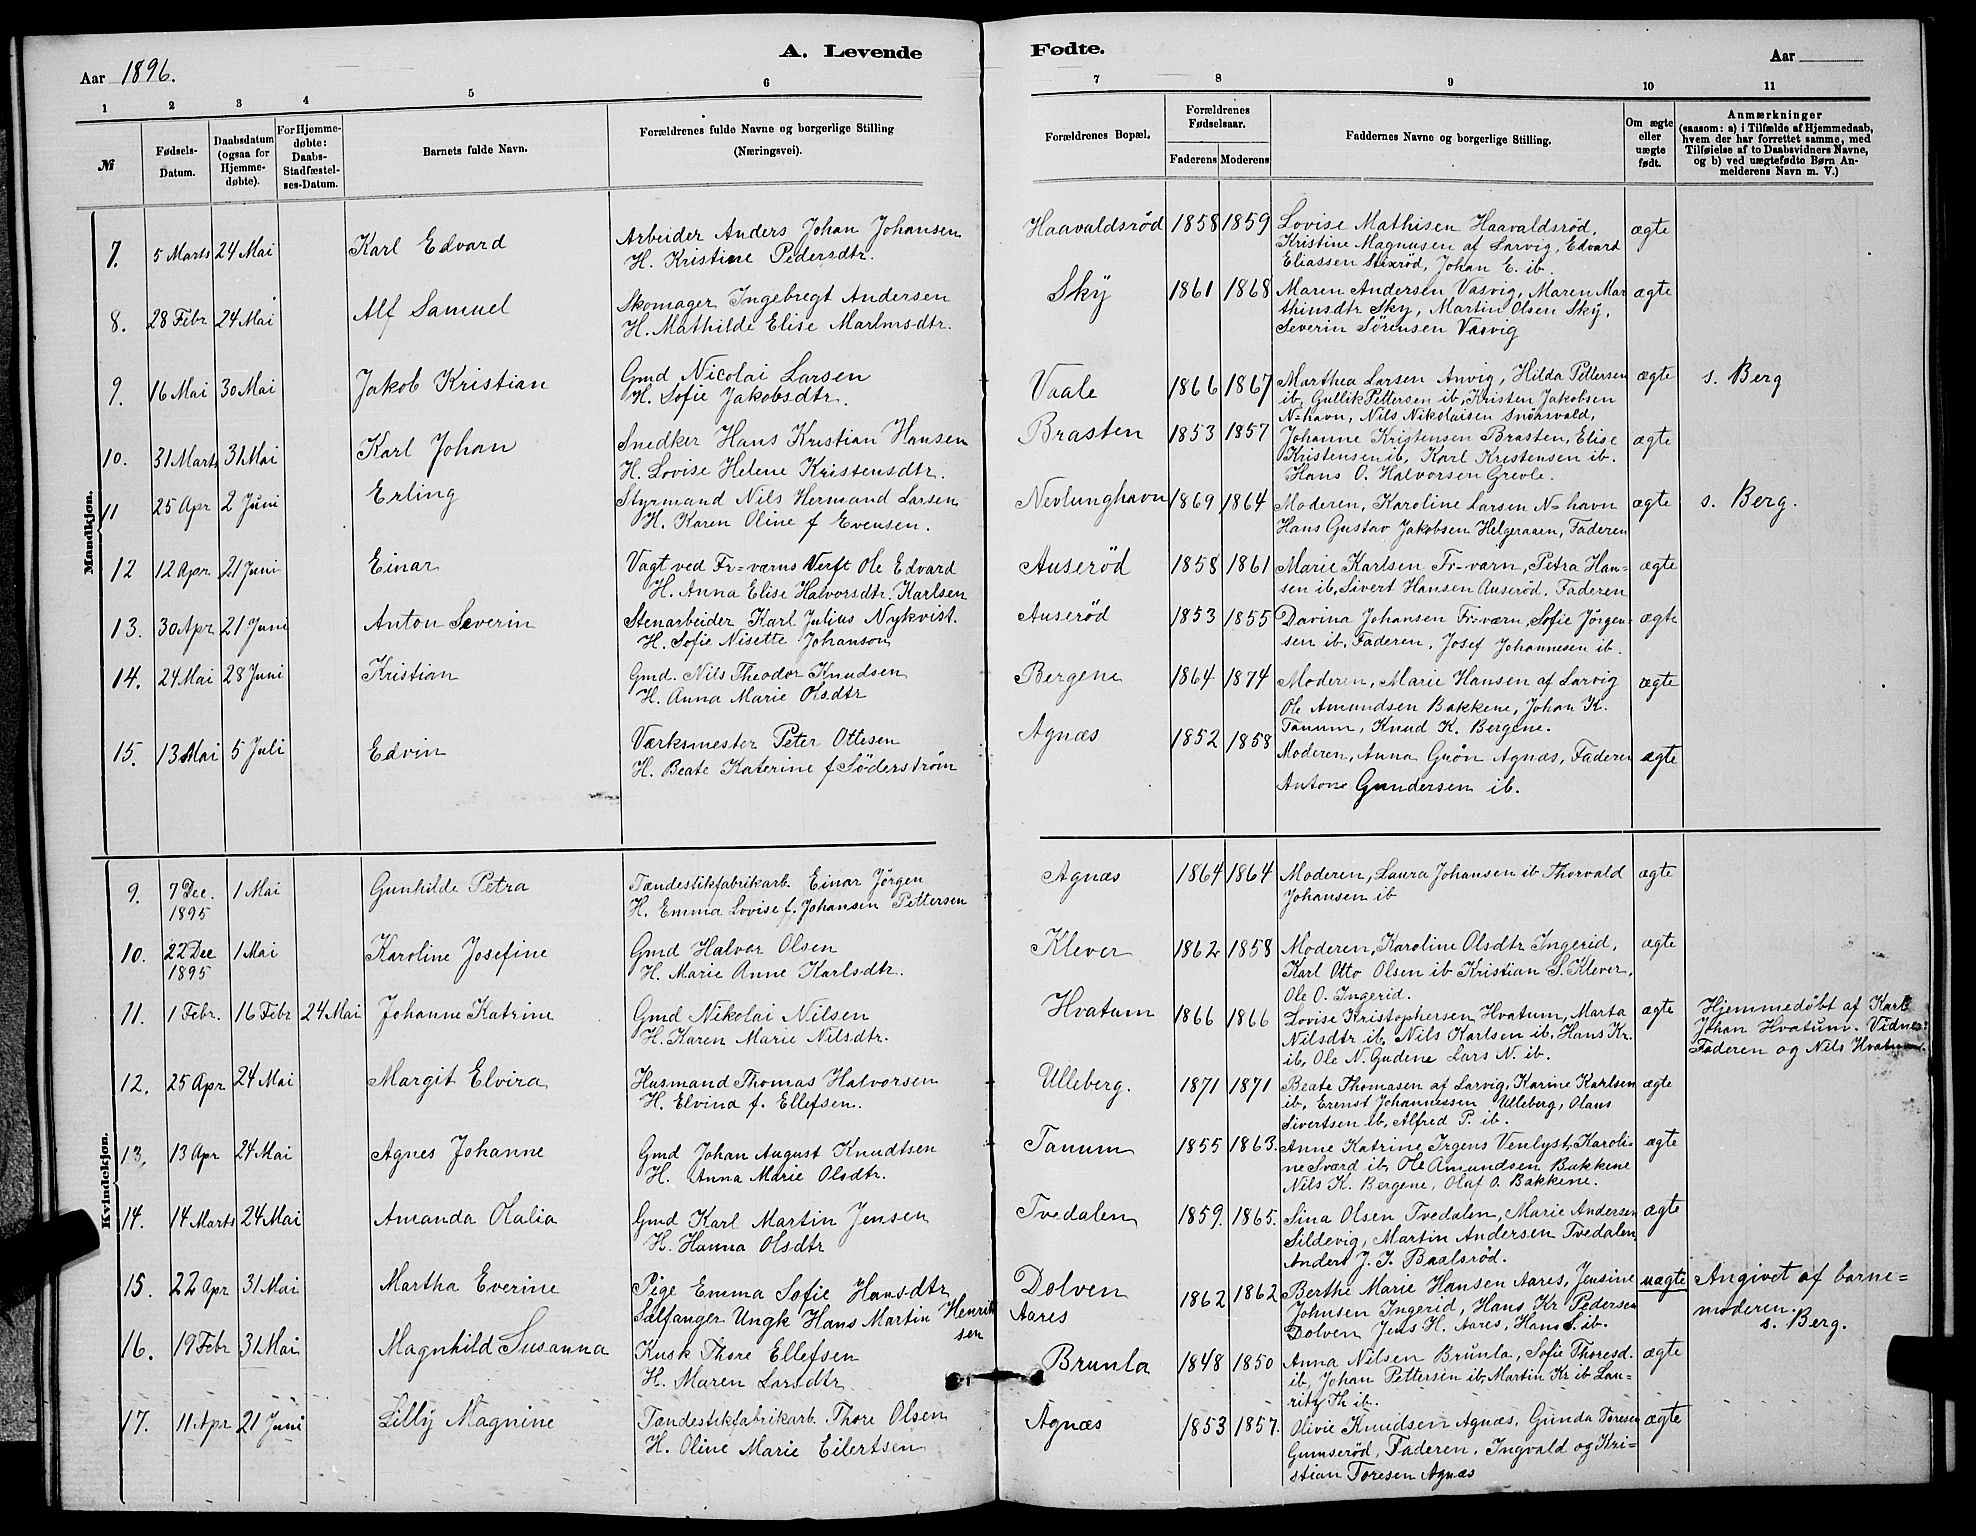 A. Levende Fødte.
Aar 1896.
Aar
1 2 3 4 5 6 7 8 9 10 11
№
Fødsels-Datum.
Daabsdatum (ogsaa for Hjemmedøbte).
For Hjemmedøbte: Daabs-Stadfæstelses-Datum.
Barnets fulde Navn.
Forældrenes fulde Navne og borgerlige Stilling (Næringsvei).
Forældrenes Bopæl.
Forældrenes Fødselsaar.
Faderens Moderens
Faddernes Navne og borgerlige Stilling.
Om ægte eller uægte født.
Anmærkninger
(saasom: a) i Tilfælde af Hjemmedaab,
hvem der har forrettet samme, med
Tilføielse af to Daabsvidners Navne,
og b) ved uægtefødte Børn Anmelderens Navn m. V.)
Mandkjøn.
7. 5 Marts 24 Mai Karl Edvard Arbeider Anders Johan Johansen Haavaldsrød 1858 1859 Lovise Mathisen Haavaldsrød, ægte
H. Kristine Pedersdtr. Kristine Magnusen af Larvig, Edvard
Eliassen Stixrød, Johan E. ib.
8. 28 Febr 24 Mai Alf Samuel Skomager Ingebregt Andersen Sky 1861 1868 Maren Andersen Vasvig, Maren Mar ægte
H. Mathilde Elise Marlmsdtr. thinsdtr Sky, Martin Olsen Sky,
Severin Sørensen Vasvig
9. 16 Mai 30 Mai Jakob Kristian Gmd Nicolai Larsen Vaale 1866 1867 Marthea Larsen Anvig, Hilda Pettersen ægte s. Berg
H. Sofie Jakobsdtr. ib, Gullik Pettersen ib, Kristen Jakobsen
N=havn, Nils Nikolaisen Snorsvald,
10. 31 Marts 31 Mai Karl Johan Snedker Hans Kristian Hansen Brasten 1853 1857 Johanne Kristensen Brasten, Elise ægte
H. Lovise Helene Kristensdtr. Kristensen ib, Karl Kristensen ib.
Hans O. Halvorsen Grevle.
11 25 Apr 2 Juni Erling Styrmand Nils Hermand Larsen Nevlunghavn 1869 1864 Moderen, Karoline Larsen N=havn ægte s. Berg.
H. Karen Oline f Evensen. Hans Gustav Jakobsen Helgeraaen, Faderen
12 12 Apr 21 Juni Einar Vagt ved Fr=værns Verft Ole Edvard Auserød 1858 1861 Marie Karlsen Fr-værn, Petra Han= ægte
H. Anna Elise Halvorsdtr. Karlsen sen ib, Sivert Hansen Auserød. Faderen
13. 30 Apr 21 Juni Anton Severin Stenarbeider Karl Julius Nykvist. Auserød 1853 1855 Davina Johansen Fr=værn, Sofie Jörgen= ægte
H. Sofie Nisette Johanson sen ib, Faderen, Josef Johannesen ib.
14. 24 Mai 28 Juni Kristian Gmd. Nils Theodor Knudsen Bergene 1864 1874 Moderen, Marie Hansen af Larvig ægte
H. Anna Marie Olsdtr Ole Amundsen Bakkene, Johan K.
Tanum, Knud K. Bergene.
15. 13 Mai 5 Juli Edvin Værksmester Peter Ottesen Agnæs 1852 1858 Moderen, Anna Grøn Agnæs, Faderen ægte
H. Beate Katerine f Söderstrøm Anton Gundersen ib.
Kvindekjøn.
9. 7 Dec. 1895 1 Mai Gunhilde Petra Tændestikfabrikarb. Einar Jørgen Agnæs 1864 1864 Moderen, Laura Johansen ib Thorvald ægte
H. Emma Lovise f. Johansen Pettersen Johansen ib
10. 22 Dec 1895 1 Mai Karoline Josefine Gmd Halvor Olsen Klever 1862 1858 Moderen, Karoline Olsdtr Ingerid, ægte
H. Marie Anne Karlsdtr. Karl Otto Olsen ib Kristian S. Klever,
Ole O. Ingerid.
11. 1 Febr. 16 Febr 24 Mai Johanne Katrine Gmd Nikolai Nilsen Hvatum 1866 1866 Lovise Kristophersen Hvatum, Marta ægte Hjemmedøbt af Karl
H. Karen Marie Nilsdtr. Nilsdtr ib, Nils Karlsen ib. Hans Kr. Johan Hvatum. Vidner:
ib, Ole N. Gudene Lars N. ib. Faderen og Nils Hvatum.
12. 25 Apr 24 Mai Margit Elvira Husmand Thomas Halvorsen Ulleberg. 1871 1871 Beate Thomasen af Larvig, Karine Karlsen ægte
H. Elvind f. Ellefsen. ib, Ernst Johannessen Ulleberg, Olaus
Sivertsen ib, Alfred P. ib.
13. 13 Apr 24 Mai Agnes Johanne Gmd Johan August Knudtsen Tanum 1855 1863. Anne Katrine Irgens Venlyst, Karoli= ægte
H. Anna Marie Olsdtr. ne Sværd ib, Ole Amundsen Bakkene
Nils K. Bergene, Olaf O. Bakkene.
14. 14 Marts 24 Mai Amanda Otalia Gmd Karl Martin Jensen Tvedalen 1859. 1865. Sina Olsen Tvedalen, Marie Andersen ægte
H. Hanna Olsdtr Sildevig, Martin Andersen Tvedalen,
Anders J. J. Baalsrød.
15. 22 Apr 31 Mai Martha Everine Pige Emma Sofie Hansdtr Dolven 1862 1862 Berthe Marie Hansen Aares, Jensine uægte Angivet af barne=
Sælfanger Ungk Hans Martin Henrik Aares Johnsen Ingerid, Hans Kr Pedersen moderen.
sen Dolven Jens H. Aares, Hans S. ib. s. Berg.
16. 19 Febr 31 Mai Magnhild Susanna Kusk Thore Ellefsen Brunla 1848 1850 Anna Nilsen Brunla, Sofie Thoresd. ægte
H. Maren Larsdtr ib, Johan Pettersen ib, Martin Kr ib Lau=
ritz Th ib.
17. 11 Apr 21 Juni Lilly Magnine Tændestikfabrikarb. Thore Olsen Agnæs 1853 1857. Olivie Knudsen Agnæs, Gunda Toresen ægte
H. Oline Marie Eilertsen Gumserød, Faderen, Ingvald og Kri=
stian Toresen Agnæs